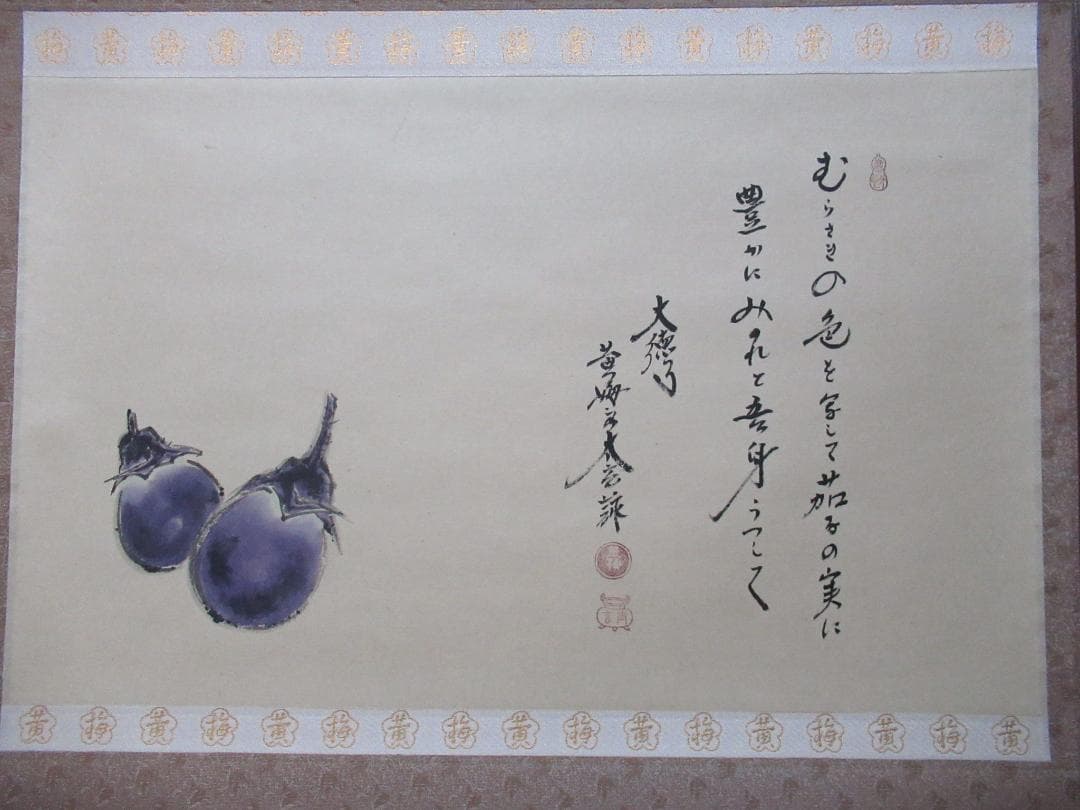 梅黄梅黄梅黄梅黄梅黄梅黄梅黄梅黄梅
むらさきの色を写して茄子の実に
豊かにみのれと吾身うつして
大徳
黄梅主太玄
黄梅黄梅黄梅黄梅黄梅黄梅黄梅黄梅黄